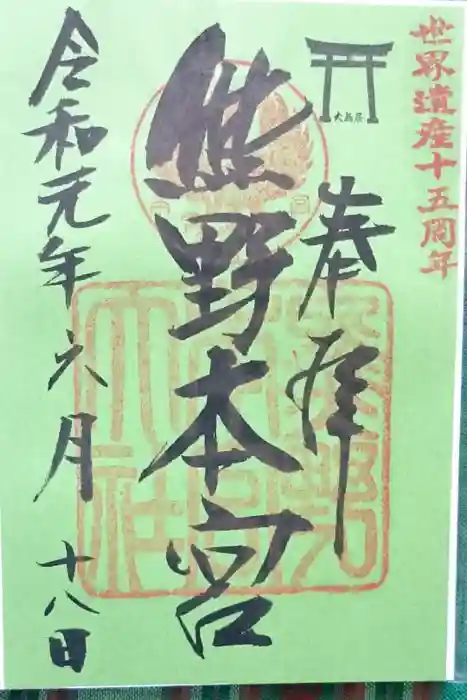 世界遺産十五周年
大鳥居
奉拝
熊野本宮
令和元年六月十八日